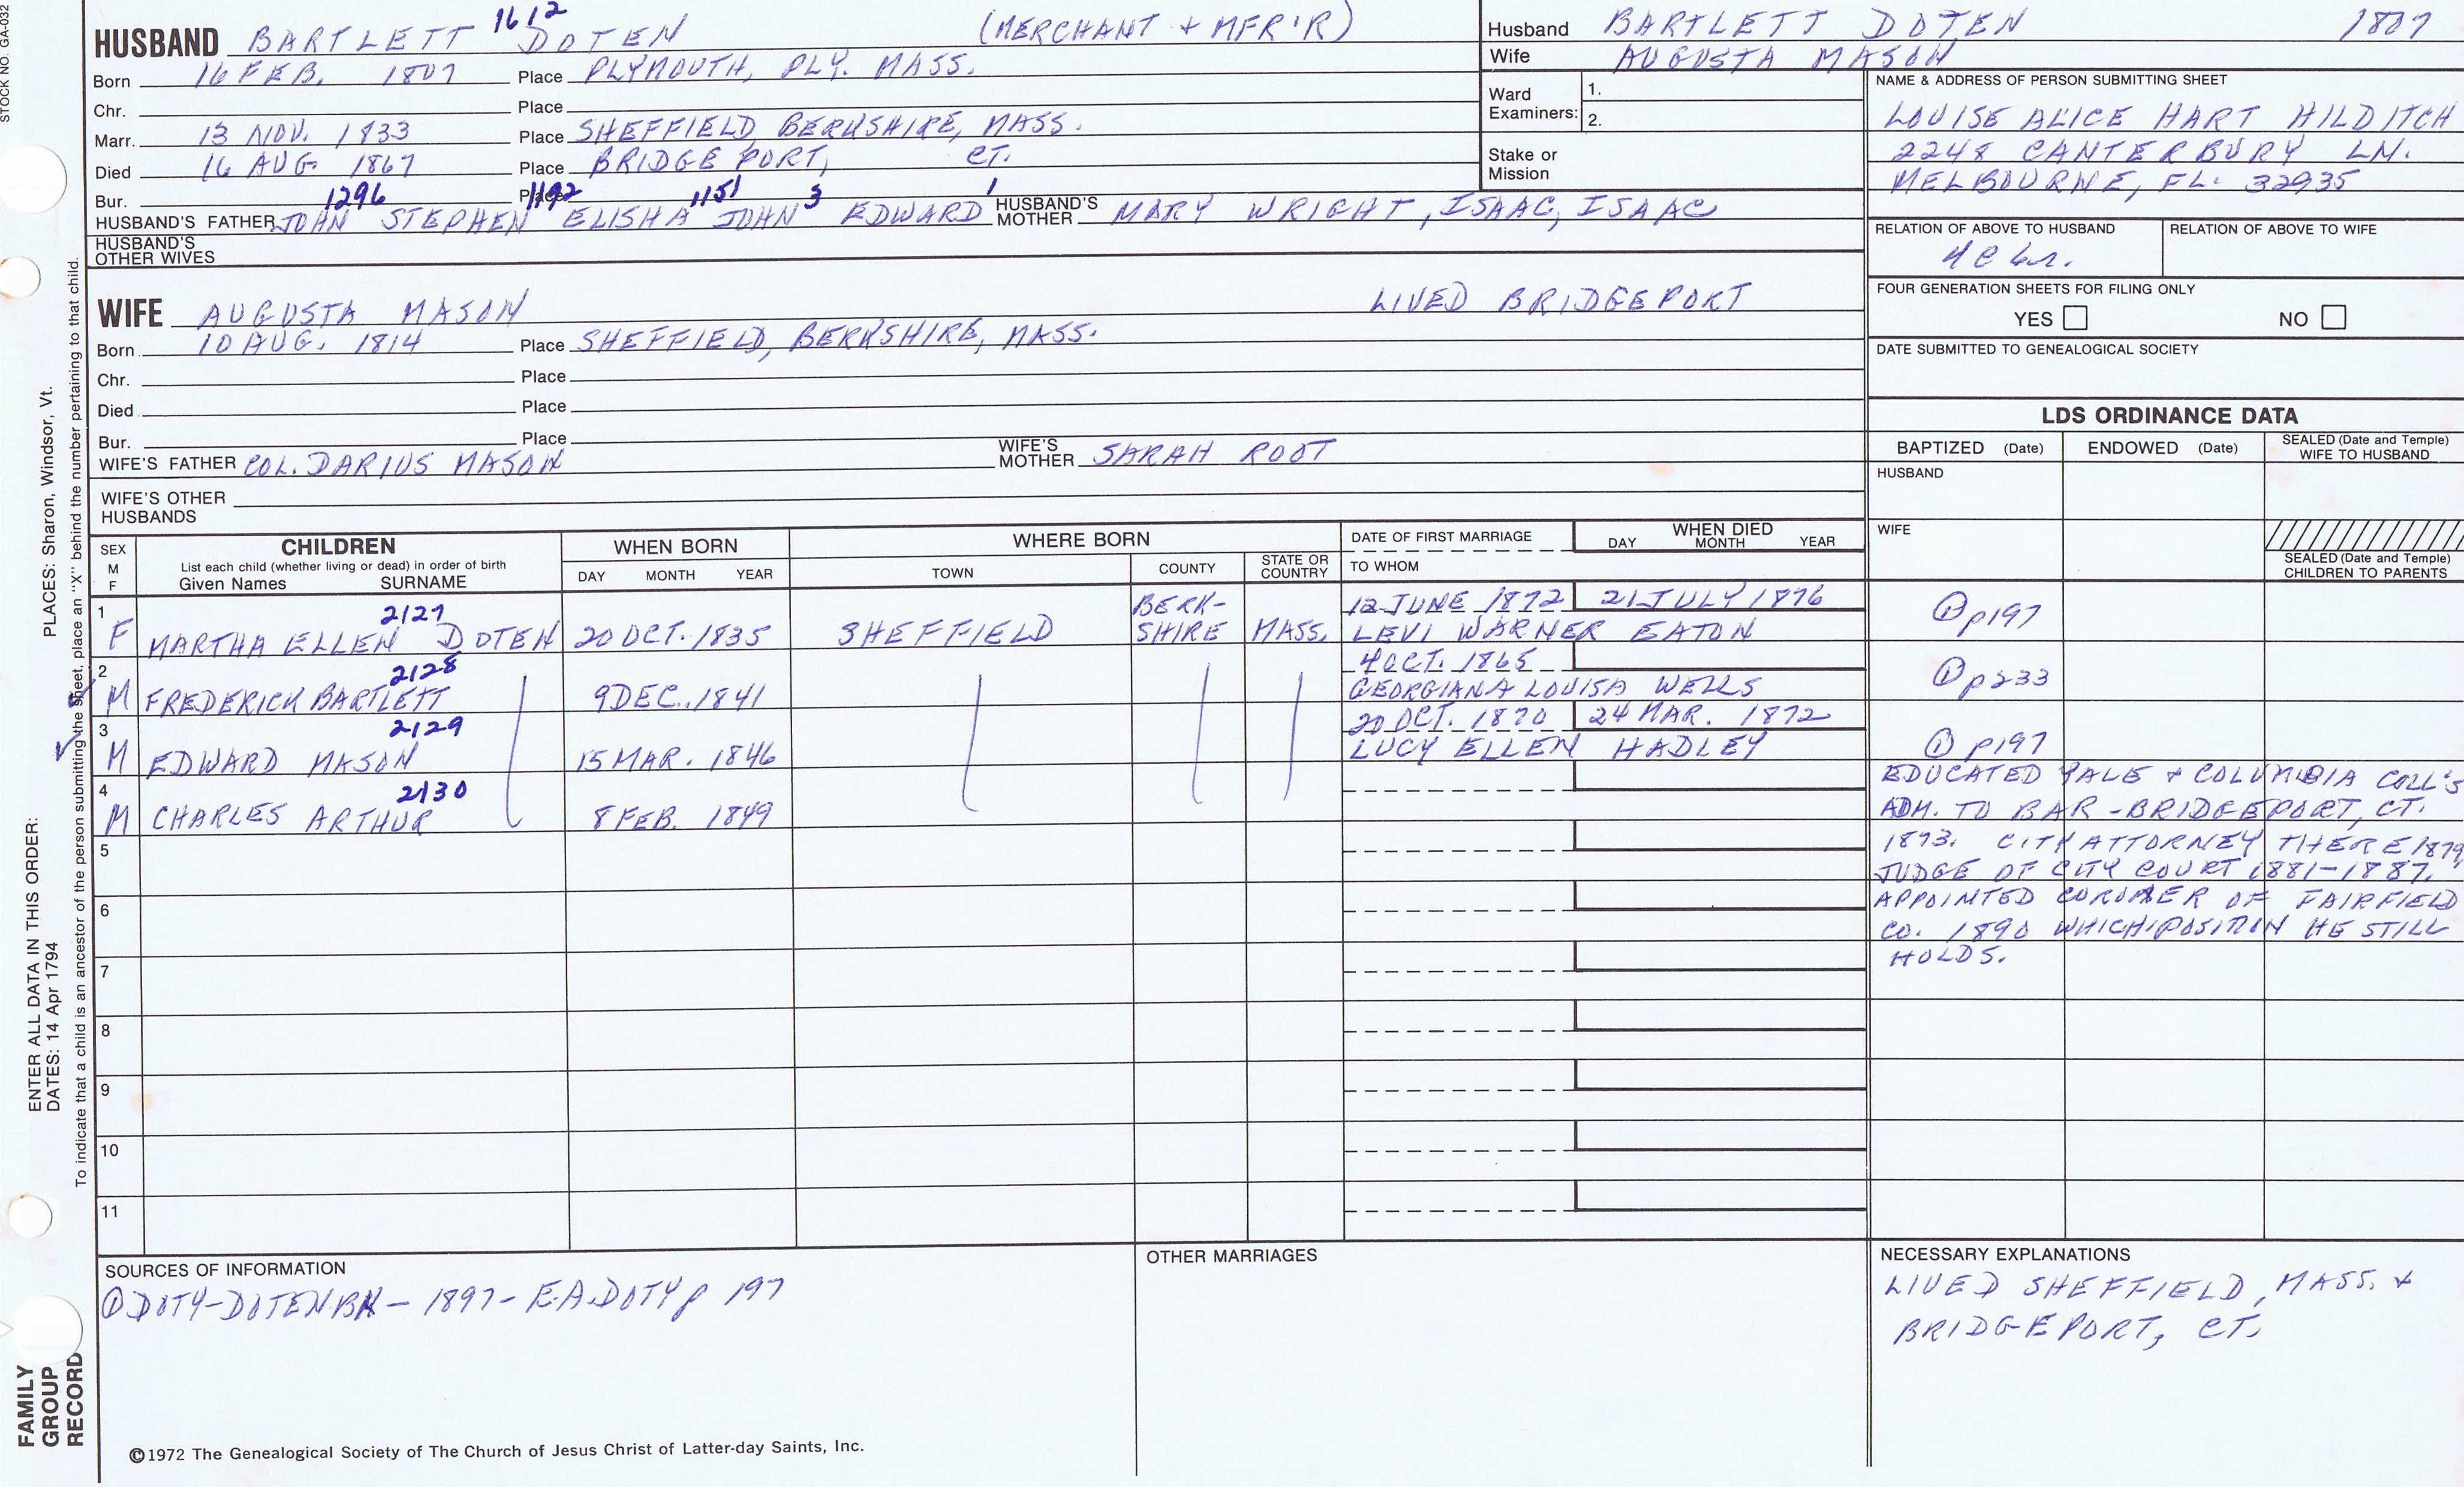 STOCK NO. GA-032
HUSBAND BARTLETT 1612 DOTEN (MERCHANT + MFR'R)
Born 16 FEB. 1807 Place PLYMOUTH, PLY. MASS.
Chr. Place
Marr. 13 NOV. 1833 Place SHEFFIELD BERKSHIRE, MASS.
Died 16 AUG. 1867 Place BRIDGEPORT, CT.
Bur. 1296 Place 1192 1151 3 1
HUSBAND'S FATHER JOHN STEPHEN ELISHA JOHN EDWARD HUSBAND'S MOTHER MARY WRIGHT, ISAAC, ISAAC
HUSBAND'S OTHER WIVES
WIFE AUGUSTA MASON LIVED BRIDGEPORT
Born 10 AUG. 1814 Place SHEFFIELD, BERKSHIRE, MASS.
Chr. Place
Died Place
Bur. Place
WIFE'S FATHER COL. DARIUS MASON WIFE'S MOTHER SARAH ROOT
WIFE'S OTHER HUSBANDS
Husband BARTLETT DOTEN 1807
Wife AUGUSTA MASON
Ward Examiners: 1.
2.
Stake or Mission
NAME & ADDRESS OF PERSON SUBMITTING SHEET
LOUISE ALICE HART HILDITCH
2248 CANTERBURY LN.
MELBOURNE, FL. 32935
RELATION OF ABOVE TO HUSBAND RELATION OF ABOVE TO WIFE
FOUR GENERATION SHEETS FOR FILING ONLY
YES NO
DATE SUBMITTED TO GENEALOGICAL SOCIETY
LDS ORDINANCE DATA
BAPTIZED (Date) ENDOWED (Date) SEALED (Date and Temple) WIFE TO HUSBAND
HUSBAND
WIFE
SEALED (Date and Temple) CHILDREN TO PARENTS
SEX M F CHILDREN WHEN BORN WHERE BORN DATE OF FIRST MARRIAGE WHEN DIED
List each child (whether living or dead) in order of birth
Given Names SURNAME DAY MONTH YEAR TOWN COUNTY STATE OR COUNTRY TO WHOM DAY MONTH YEAR
1 2127 BERK- 12 JUNE 1872 21 JULY 1876
F MARTHA ELLEN DOTEN 20 OCT. 1835 SHEFFIELD SHIRE MASS. LEVI WARNER EATON ① p197
2 2128 4 OCT. 1865
M FREDERICK BARTLETT 9 DEC. 1841 GEORGIANA LOUISA WELLS ① p233
3 2129 20 OCT. 1870 24 MAR. 1872
M EDWARD MASON 15 MAR. 1846 LUCY ELLEN HADLEY ① p197
4 2130
M CHARLES ARTHUR 8 FEB. 1849
EDUCATED YALE + COLUMBIA COLL'S
ADM. TO BAR - BRIDGEPORT, CT.
1873. CITY ATTORNEY THERE 1879
JUDGE OF CITY COURT 1881-1887.
APPOINTED CORONER OF FAIRFIELD
CO. 1890 WHICH POSITION HE STILL
HOLDS.
5
6
7
8
9
10
11
SOURCES OF INFORMATION
① DOTY-DOTEN BK - 1897 - E.A. DOTY p 197
OTHER MARRIAGES
NECESSARY EXPLANATIONS
LIVED SHEFFIELD, MASS. +
BRIDGEPORT, CT.
©1972 The Genealogical Society of The Church of Jesus Christ of Latter-day Saints, Inc.
FAMILY
GROUP
RECORD
ENTER ALL DATA IN THIS ORDER:
DATES: 14 Apr 1794 PLACES: Sharon, Windsor, Vt.
To indicate that a child is an ancestor of the person submitting the sheet, place an "X" behind the number pertaining to that child.